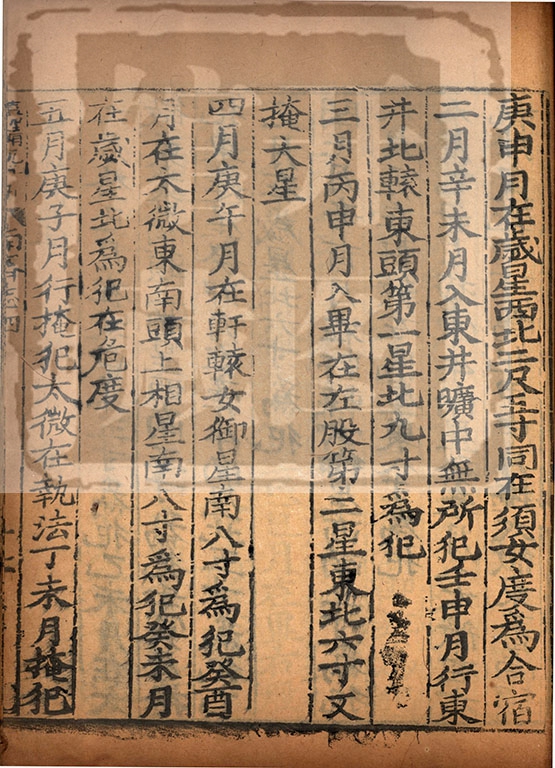 庚申月在歲星西北二尺五寸同在須女度爲合宿
二月辛未月入東井曠中無所犯壬申月行東
井北轅東頭第一星北九寸爲犯
三月丙申月入畢在左股第二星東北六寸又
掩大星
四月庚午月在軒轅女御星南八寸爲犯癸酉
月在太微東南頭上相星南八寸爲犯癸未月
在歲星北爲犯在危度
五月庚子月行掩犯太微在執法丁未月掩犯